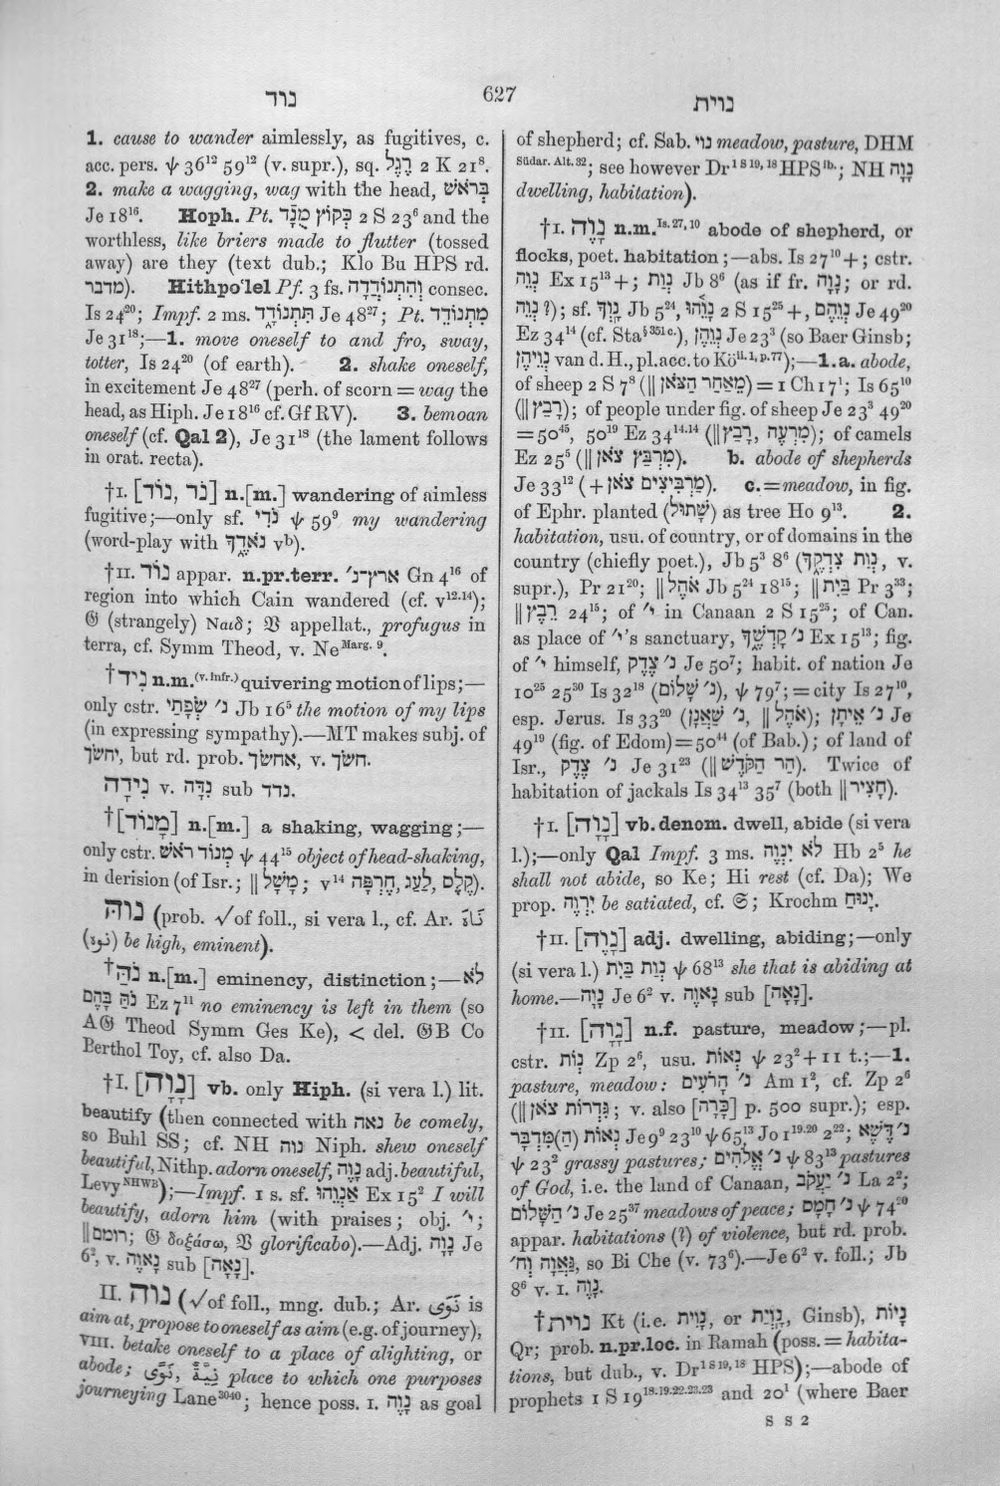 נוד
627
נוית
1. cause to wander aimlessly, as fugitives, c.
acc. pers. ψ 36¹² 59¹² (v. supr.), sq. רֶגֶל 2 K 21⁸.
2. make a wagging, wag with the head, בְּרֹאשׁ
Je 18¹⁶. Hoph. Pt. כְּקוֹץ מֻנָד 2 S 23⁶ and the
worthless, like briers made to flutter (tossed
away) are they (text dub.; Klo Bu HPS rd.
מדבר). Hithpo‘lel Pf. 3 fs. וְהִתְנוֹדְדָה consec.
Is 24²⁰; Impf. 2 ms. תִּתְנוֹדָד Je 48²⁷; Pt. מִתְנוֹדֵד
Je 31¹⁸;—1. move oneself to and fro, sway,
totter, Is 24²⁰ (of earth). 2. shake oneself,
in excitement Je 48²⁷ (perh. of scorn = wag the
head, as Hiph. Je 18¹⁶ cf. Gf RV). 3. bemoan
oneself (cf. Qal 2), Je 31¹⁸ (the lament follows
in orat. recta).
†I. [נוֹד, נֹד] n.[m.] wandering of aimless
fugitive;—only sf. נֹדִי ψ 59⁹ my wandering
(word-play with נֹאדֶךָ vᵇ).
†II. נוֹד appar. n.pr.terr. אֶרֶץ־נ׳ Gn 4¹⁶ of
region into which Cain wandered (cf. v¹²·¹⁴);
𝔊 (strangely) Ναιδ; 𝔙 appellat., profugus in
terra, cf. Symm Theod, v. Ne Marg. 9.
†נִיד n.m.(v. Infr.) quivering motion of lips;—
only cstr. נ׳ שְׂפָתַי Jb 16⁵ the motion of my lips
(in expressing sympathy).—MT makes subj. of
יחשׂך, but rd. prob. אחשׂך, v. חשׂך.
נִידָה v. נִדָּה sub נדד.
†[מָנוֹד] n.[m.] a shaking, wagging;—
only cstr. מְנוֹד רֹאשׁ ψ 44¹⁵ object of head-shaking,
in derision (of Isr.; ‖ מָשָׁל; v¹⁴ חֶרְפָּה, לַעַג, קֶלֶס).
נוה (prob. √ of foll., si vera l., cf. Ar. نَاهَ
(نوه) be high, eminent).
†נֹהַּ n.[m.] eminency, distinction;—לֹא
נֹהַּ בָּהֶם Ez 7¹¹ no eminency is left in them (so
A𝔊 Theod Symm Ges Ke), < del. 𝔊B Co
Berthol Toy, cf. also Da.
†I. [נָוָה] vb. only Hiph. (si vera l.) lit.
beautify (then connected with נאה be comely,
so Buhl SS; cf. NH נוה Niph. shew oneself
beautiful, Nithp. adorn oneself, נָוֶה adj. beautiful,
Levy NHWB);—Impf. 1 s. sf. אַנְוֵהוּ Ex 15² I will
beautify, adorn him (with praises; obj. ׳י;
‖ רומם; 𝔊 δοξάσω, 𝔙 glorificabo).—Adj. נָוָה Je
6², v. נָאוֶה sub [נָאָה].
II. נוה (√ of foll., mng. dub.; Ar. نَوَى is
aim at, propose to oneself as aim (e.g. of journey),
VIII. betake oneself to a place of alighting, or
abode; نَوًى, نِيَّةٌ place to which one purposes
journeying Lane³⁰⁴⁰; hence poss. I. נָוֶה as goal
of shepherd; cf. Sab. נוי meadow, pasture, DHM
Südar. Alt. 32; see however Dr 1 S 19, 18 HPS ib.; NH נָוֶה
dwelling, habitation).
†I. נָוֶה n.m. Is. 27, 10 abode of shepherd, or
flocks, poet. habitation;—abs. Is 27¹⁰ +; cstr.
נְוֵה Ex 15¹³ +; נְוַת Jb 8⁶ (as if fr. נָוָה; or rd.
נְוֵה?); sf. נָוְךָ Jb 5²⁴, נָוֵהוּ 2 S 15²⁵ +, נְוֵהֶם Je 49²⁰
Ez 34¹⁴ (cf. Sta§ 351 c.), נְוֵהֶן Je 23³ (so Baer Ginsb;
נְוֵיהֶן van d. H., pl. acc. to Kö ii. 1, p. 77);—1. a. abode,
of sheep 2 S 7⁸ (‖ מֵאַחַר הַצֹּאן) = 1 Ch 17⁷; Is 65¹⁰
(‖ רֵבֶץ); of people under fig. of sheep Je 23³ 49²⁰
= 50⁴⁵, 50¹⁹ Ez 34¹⁴·¹⁴ (‖ רָבַץ, מִרְעֶה); of camels
Ez 25⁵ (‖ מִרְבַּץ צֹאן). b. abode of shepherds
Je 33¹² (+ מַרְבִּיצִים צֹאן). c. = meadow, in fig.
of Ephr. planted (שָׁתוּל) as tree Ho 9¹³. 2.
habitation, usu. of country, or of domains in the
country (chiefly poet.), Jb 5³ 8⁶ (נְוַת צִדְקֶךָ, v.
supr.), Pr 21²⁰; ‖ אֹהֶל Jb 5²⁴ 18¹⁵; ‖ בַּיִת Pr 3³³;
‖ רֵבֶץ 24¹⁵; of ׳י in Canaan 2 S 15²⁵; of Can.
as place of ׳י's sanctuary, נ׳ קָדְשֶׁךָ Ex 15¹³; fig.
of ׳י himself, נ׳ צֶדֶק Je 50⁷; habit. of nation Je
10²⁵ 25³⁰ Is 32¹⁸ (נ׳ שָׁלוֹם), ψ 79⁷; = city Is 27¹⁰,
esp. Jerus. Is 33²⁰ (נ׳ שַׁאֲנָן, ‖ אֹהֶל); נ׳ אֵיתָן Je
49¹⁹ (fig. of Edom) = 50⁴⁴ (of Bab.); of land of
Isr., נ׳ צֶדֶק Je 31²³ (‖ הַר הַקֹּדֶשׁ). Twice of
habitation of jackals Is 34¹³ 35⁷ (both ‖ חָצִיר).
†I. [נָוָה] vb. denom. dwell, abide (si vera
l.);—only Qal Impf. 3 ms. לֹא יִנְוֶה Hb 2⁵ he
shall not abide, so Ke; Hi rest (cf. Da); We
prop. יִרְוֶה be satiated, cf. 𝔖; Krochm יָנוּחַ.
†II. [נָוֶה] adj. dwelling, abiding;—only
(si vera l.) נְוַת בַּיִת ψ 68¹³ she that is abiding at
home.—נָוָה Je 6² v. נָאוֶה sub [נָאָה].
†II. [נָוָה] n.f. pasture, meadow;—pl.
cstr. נְוֹת Zp 2⁶, usu. נְאוֹת ψ 23² + 11 t.;—1.
pasture, meadow: נ׳ הָרֹעִים Am 1², cf. Zp 2⁶
(‖ גִּדְרוֹת צֹאן; v. also [כָּרָה] p. 500 supr.); esp.
נְאוֹת (הַ)מִּדְבָּר Je 9⁹ 23¹⁰ ψ 65¹³ Jo 1¹⁹·²⁰ 2²²; נ׳ דֶּשֶׁא
ψ 23² grassy pastures; נ׳ אֱלֹהִים ψ 83¹³ pastures
of God, i.e. the land of Canaan, נ׳ יַעֲקֹב La 2²;
נ׳ הַשָּׁלוֹם Je 25³⁷ meadows of peace; נ׳ חָמָס ψ 74²⁰
appar. habitations (?) of violence, but rd. prob.
גַּאֲוָה וְח׳, so Bi Che (v. 73⁶).—Je 6² v. foll.; Jb
8⁶ v. I. נָוֶה.
†נוית Kt (i.e. נָוִית, or נְוָיִת, Ginsb), נָיוֹת
Qr; prob. n.pr.loc. in Ramah (poss. = habita-
tions, but dub., v. Dr 1 S 19, 18 HPS);—abode of
prophets 1 S 19¹⁸·¹⁹·²²·²³·²³ and 20¹ (where Baer
S S 2